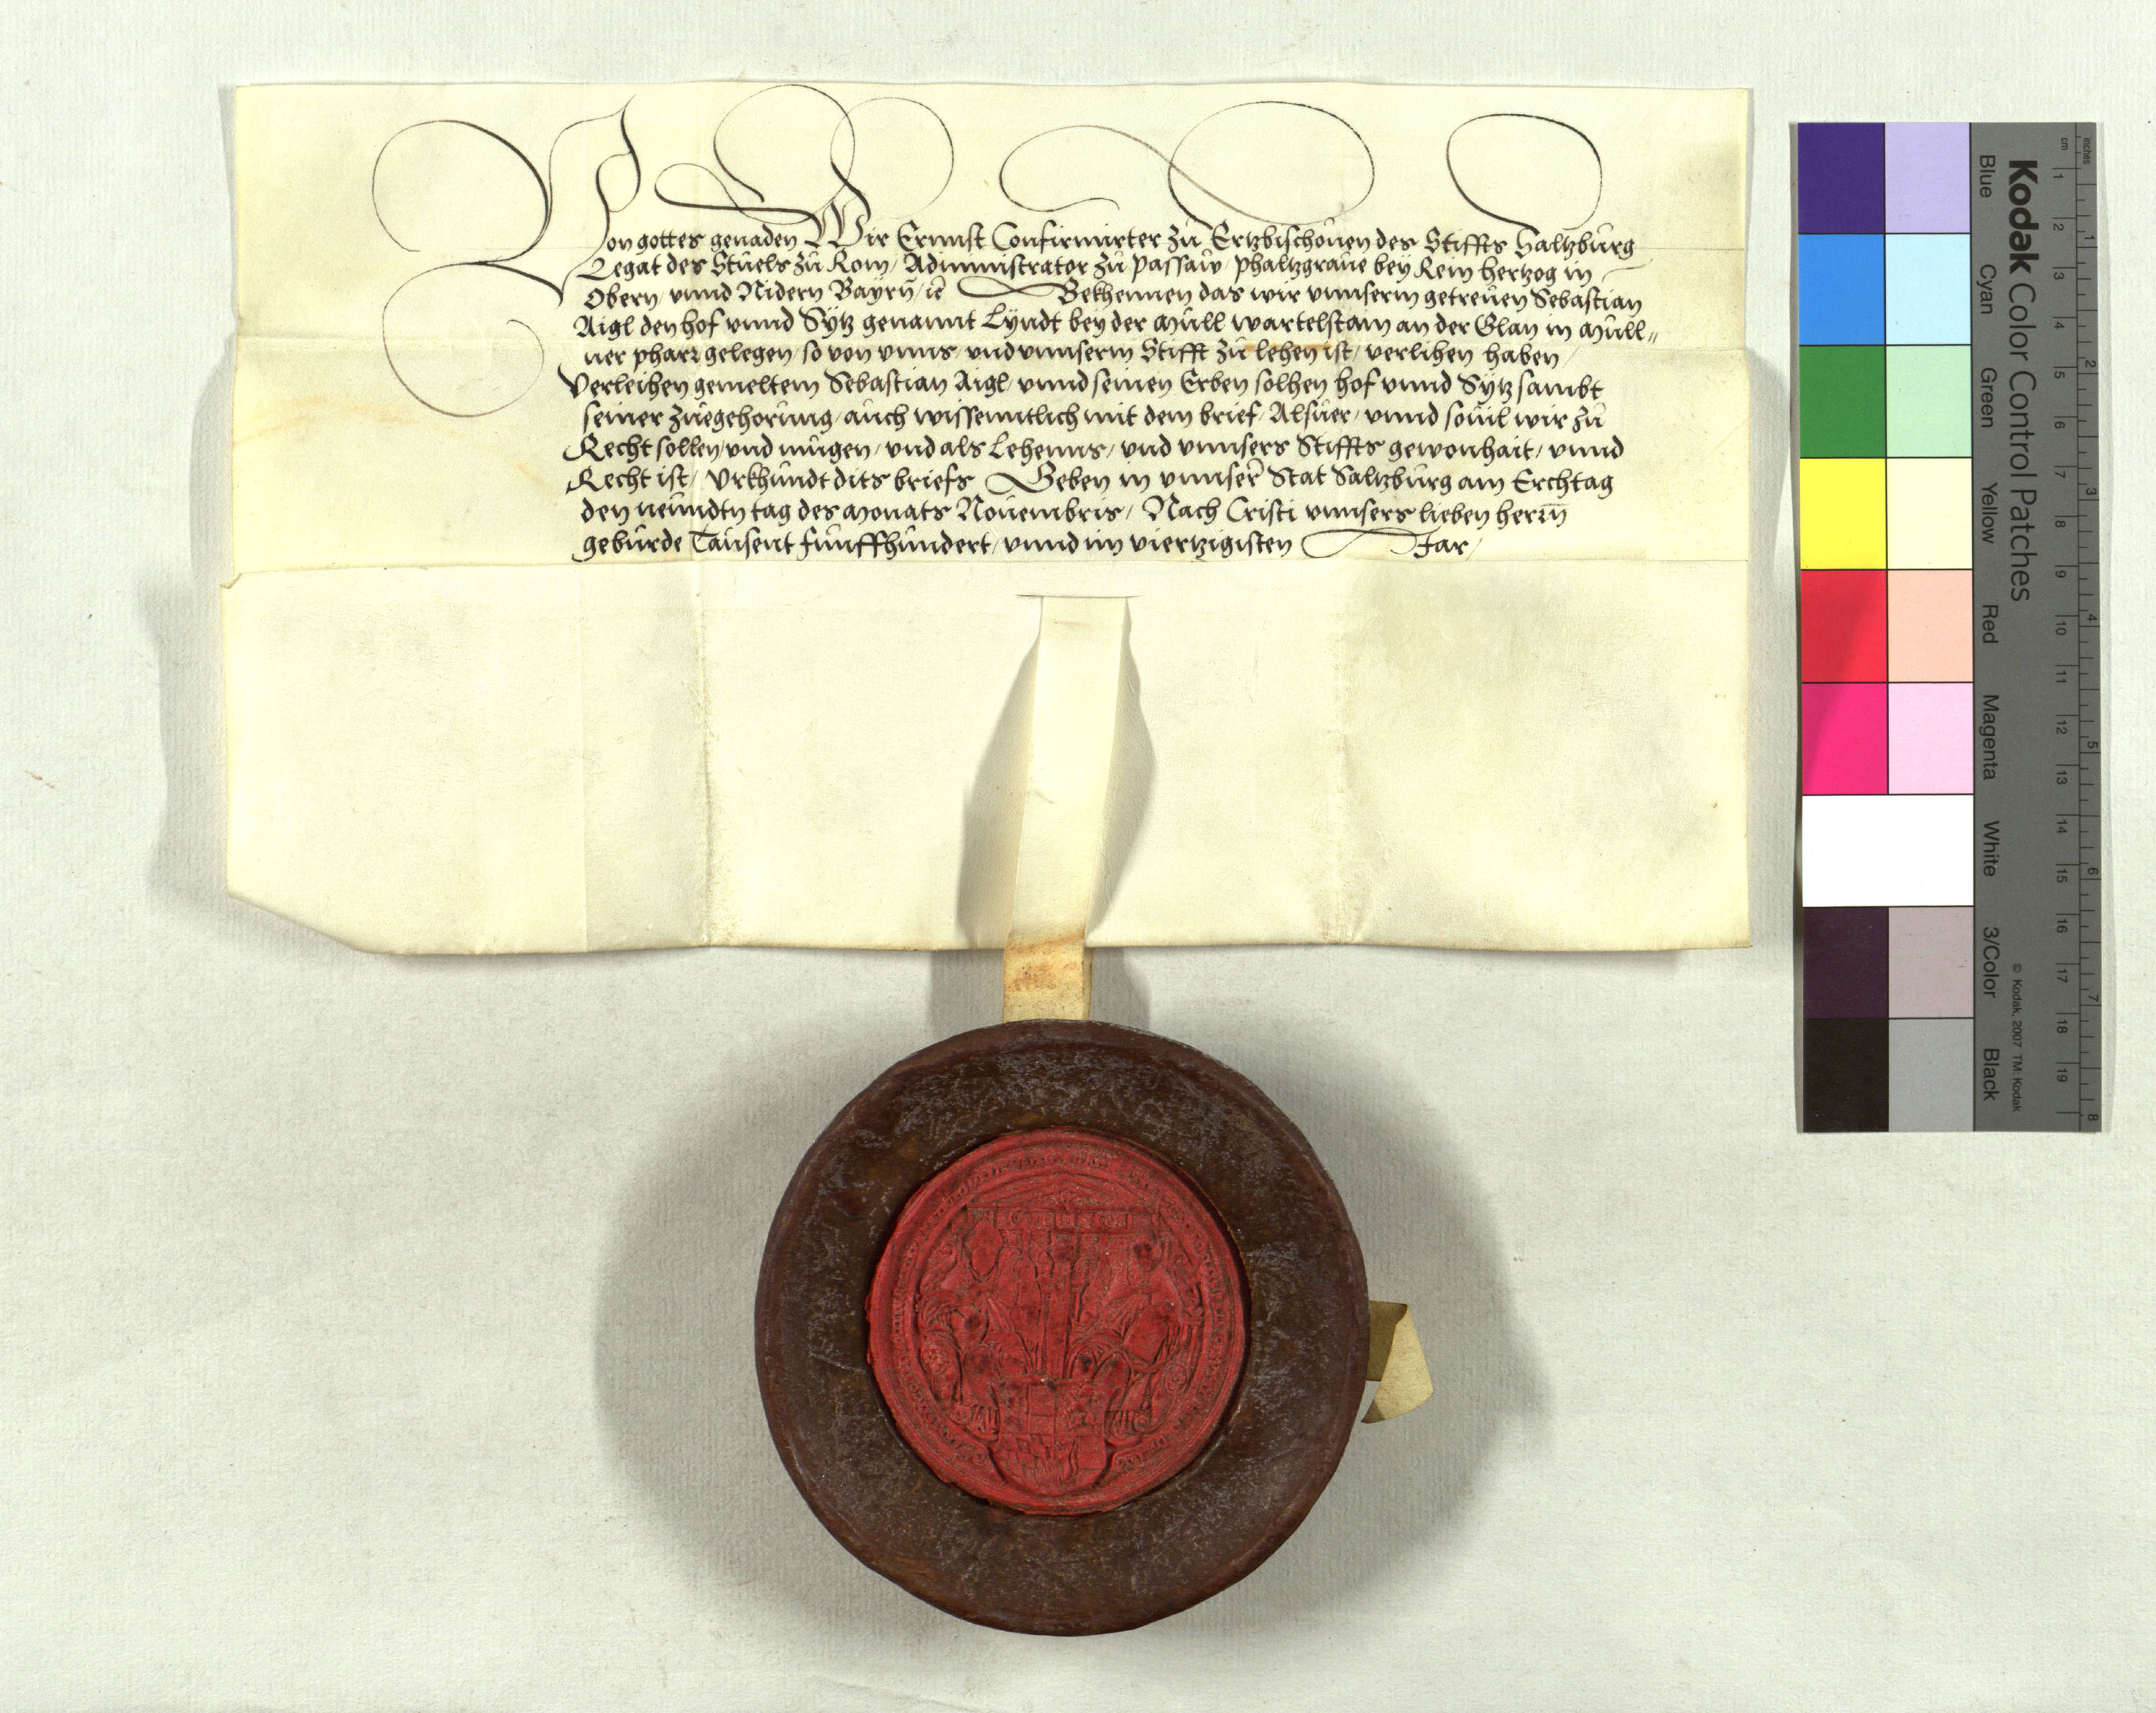 Von gottes genaden Wir Ernnst Confirmirter zů Ertzbischouen des Stiffts Saltzbůrg
Legat des Stůels zů Rom / Administrator zů Passaw / phaltzgraue bey Rein hertzog in
Obern / vnnd Nidern Bayrn̄ / ꝛc̄ Bekhennen das wir vnnserm getreůen Sebastian
Aigl den hof vnnd Sytz genannt Lyndt bey der Můll wartelstain an der Glan in Můll„
ner pharr gelegen / so von vnns / vnd vnnserm Stifft zů lehen ist / verlihen haben /
Verleihen gemeltem Sebastian Aigl / vnnd seinen Erben solhen hof vnnd Sytz sambt
seiner zůegehorůng / aůch wissenntlich mit dem brief / Alsůer / vnnd souil wir zů
Recht sollen / vnd můgen / vnd als Lehenns / vnd vnnsers Stiffts gewonhait / vnnd
Recht ist / Vrkhůndt dits briefs Geben in vnnser̄ Stat Saltzbůrg am Erchtag
den neůndtn tag des Monats Nouembris / Nach Cristi vnnsers lieben herrn̄
gebůrde Taůsent fůnffhůndert / vnnd im viertzigisten Jar /
Kodak Color Control Patches
Blue Cyan Green Yellow Red Magenta White 3/Color Black
© Kodak, 2007 TM: Kodak
inches 1 2 3 4 5 6 7 8
cm 1 2 3 4 5 6 7 8 9 10 11 12 13 14 15 16 17 18 19